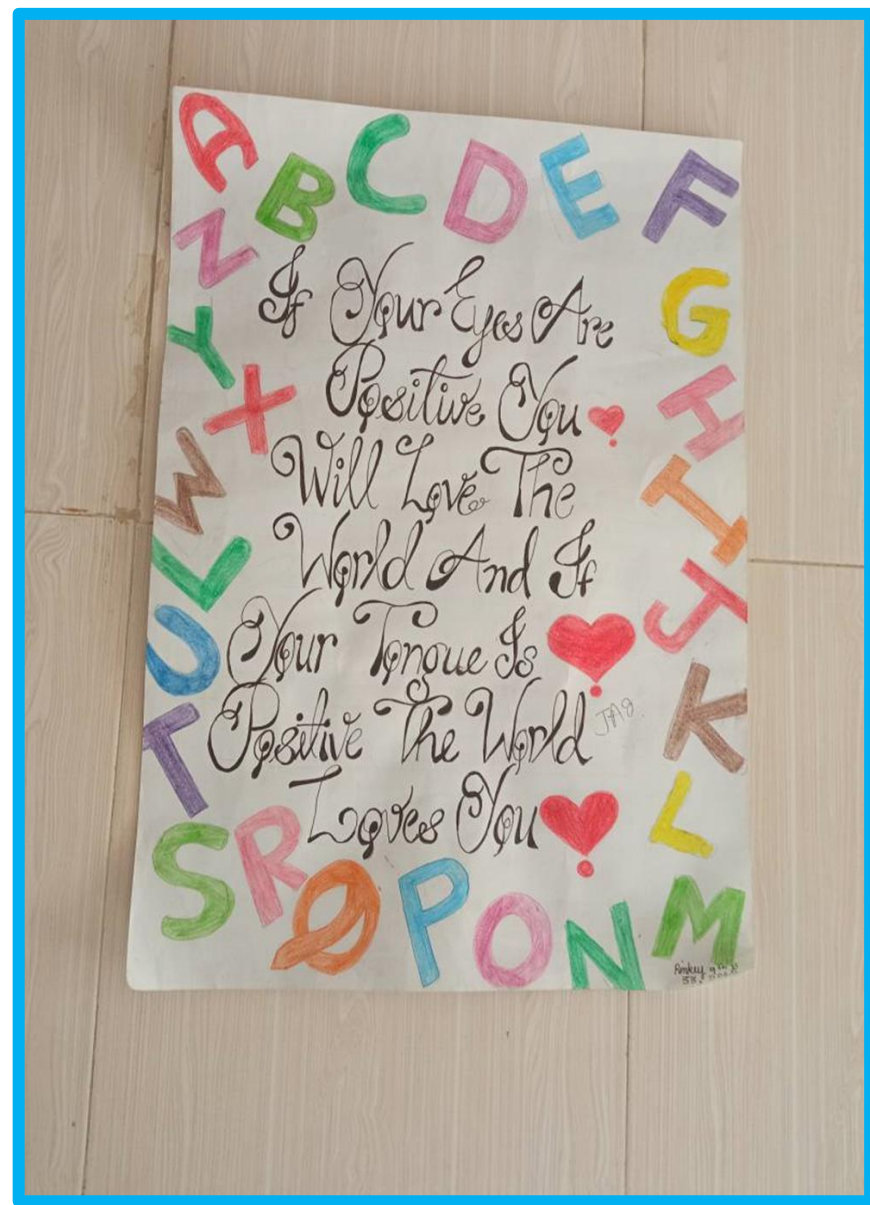 A B C D E F
G
H
I
J
K
L
M
N
O
P
Q
R
S
T
U
X
Y
Z
W
If Your Eyes Are
Positive You
Will Love The
World And If
Your Tongue Is
Positive The World
Loves You